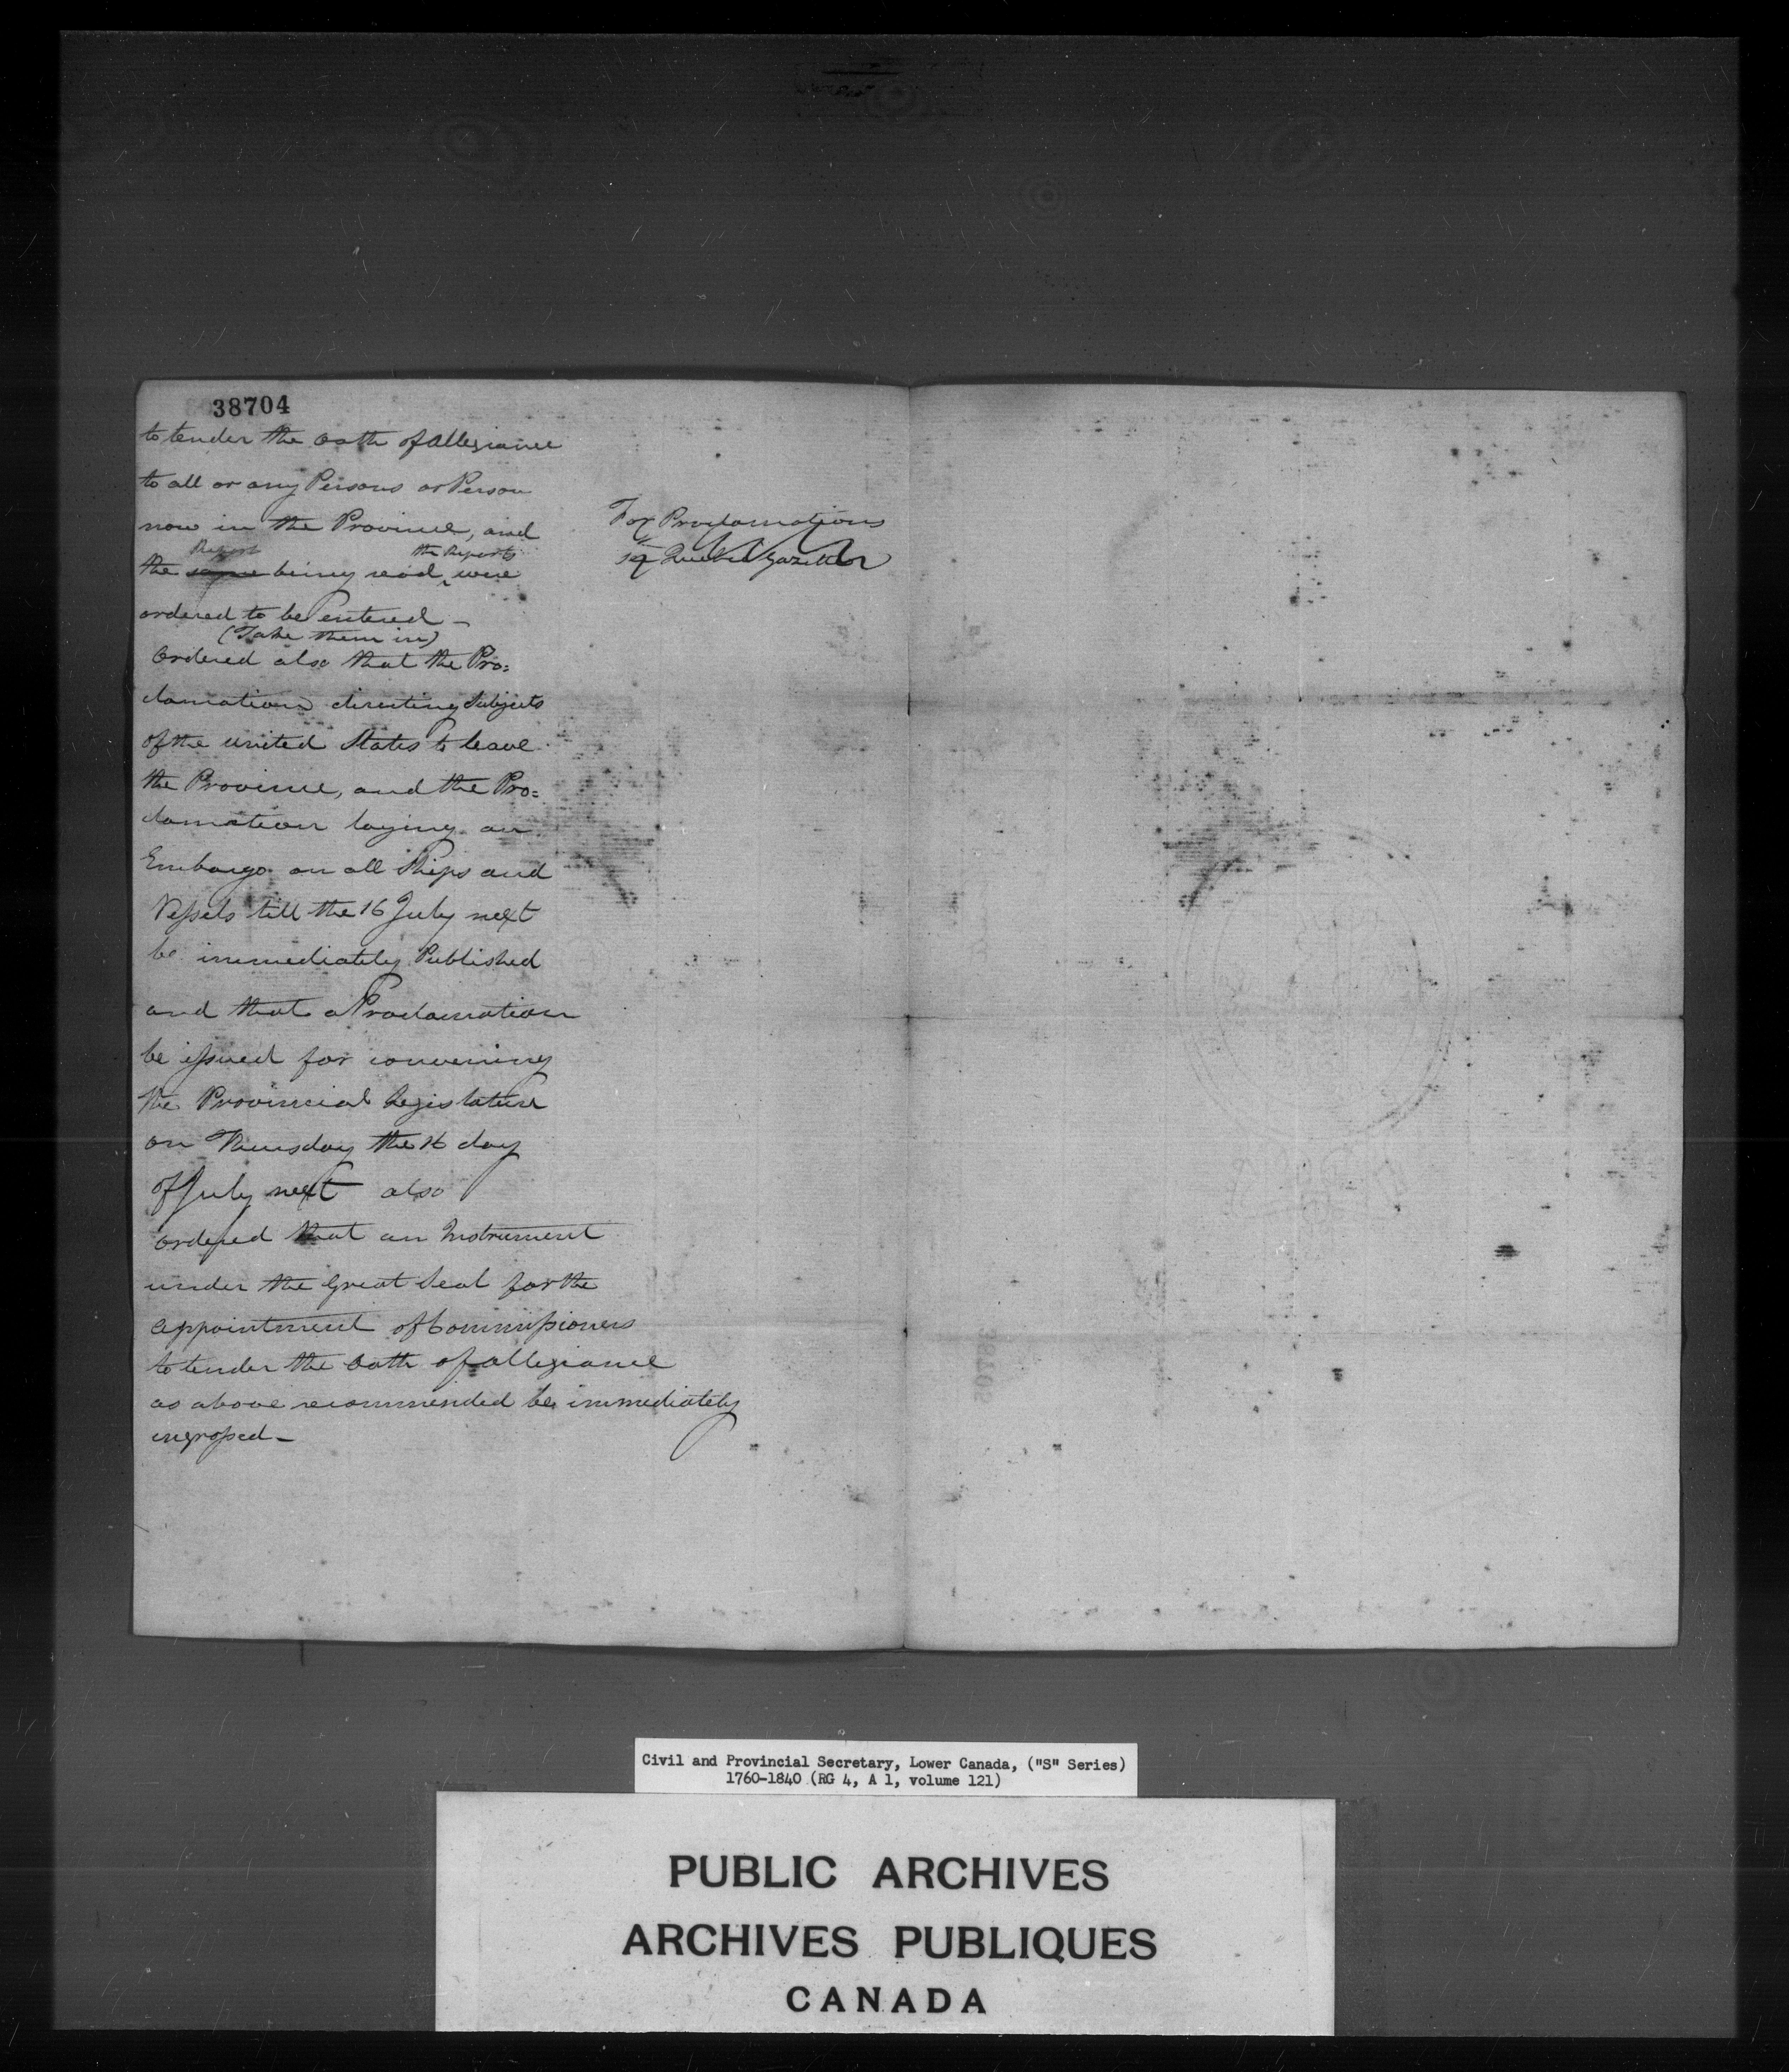 38704
to tender the oath of allegiance
to all or any Persons or Person
now in the Province, and
Report the Reports
the same being read, were
ordered to be entered —
(Take them in)
Ordered also that the Pro=
clamation directing Subjects
of the united States to leave
the Province, and the Pro=
clamation laying an
Embargo on all Ships and
Vessels till the 16 July next
be immediately Published
and that a Proclamation
be issued for convening
the Provincial Legislature
on Thursday the 16 day
of July next also
ordered that an Instrument
under the Great Seal for the
appointment of Commissioners
to tender the oath of allegiance
as above recommended be immediately
ingrossed —
For Proclamations
see Quebec Gazette
Civil and Provincial Secretary, Lower Canada, ("S" Series)
1760-1840 (RG 4, A 1, volume 121)
PUBLIC ARCHIVES
ARCHIVES PUBLIQUES
CANADA